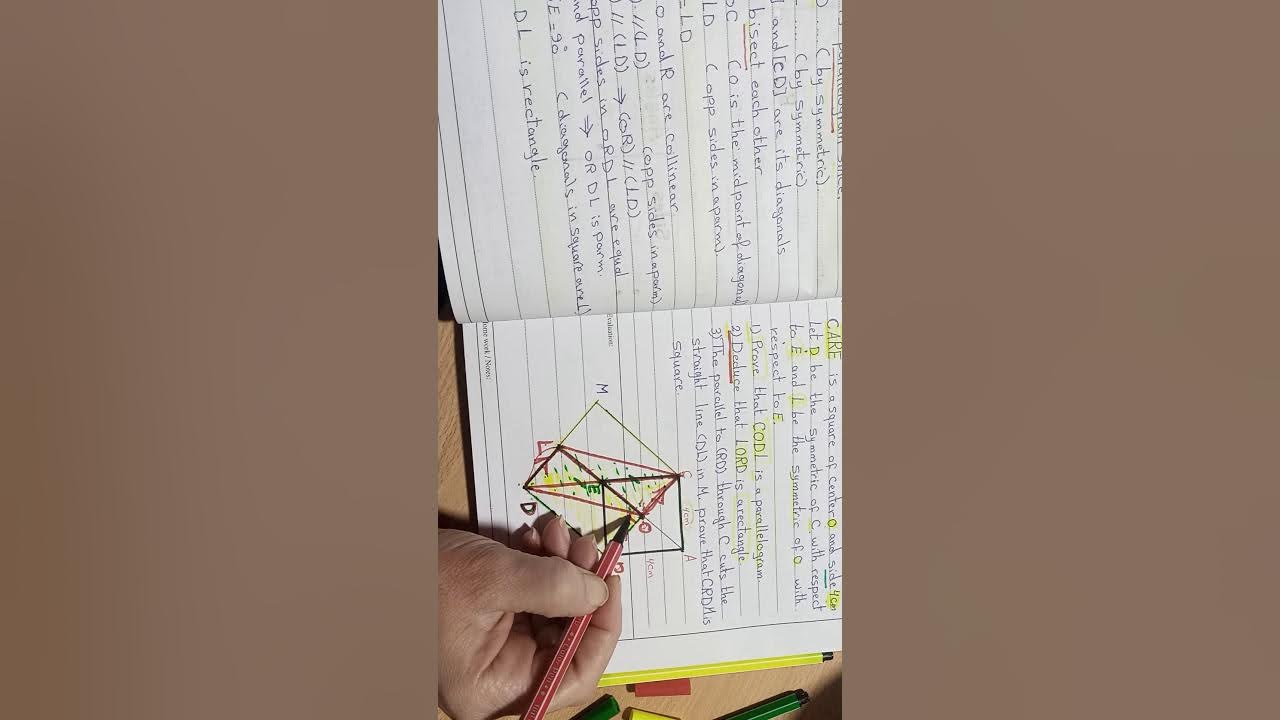 parallelogram since,
(by symmetric).
(by symmetric)
] and [CD] are its diagonals
bisect each other
OC (O is the midpoint of diagonal)
LD (opp sides in a parm).
= LD
O and R are collinear
) // (LD) (opp sides in a parm)
) // (LD) → (OR) // (LD)
opp sides in ORDL are equal
and parallel → ORDL is parm.
E = 90° (diagonals in square are ⊥)
DL is rectangle.
CARE is a square of center O and side 4cm
Let D be the symmetric of C with respect
to E and L be the symmetric of O with
respect to E.
1) Prove that CODL is a parallelogram.
2) Deduce that LORD is a rectangle.
3) The parallel to (RD) through C cuts the
straight line (DL) in M, prove that CRDM is
square.
Evaluation:
M
C
4cm
A
4cm
O
E
L
D
Home work / Notes: